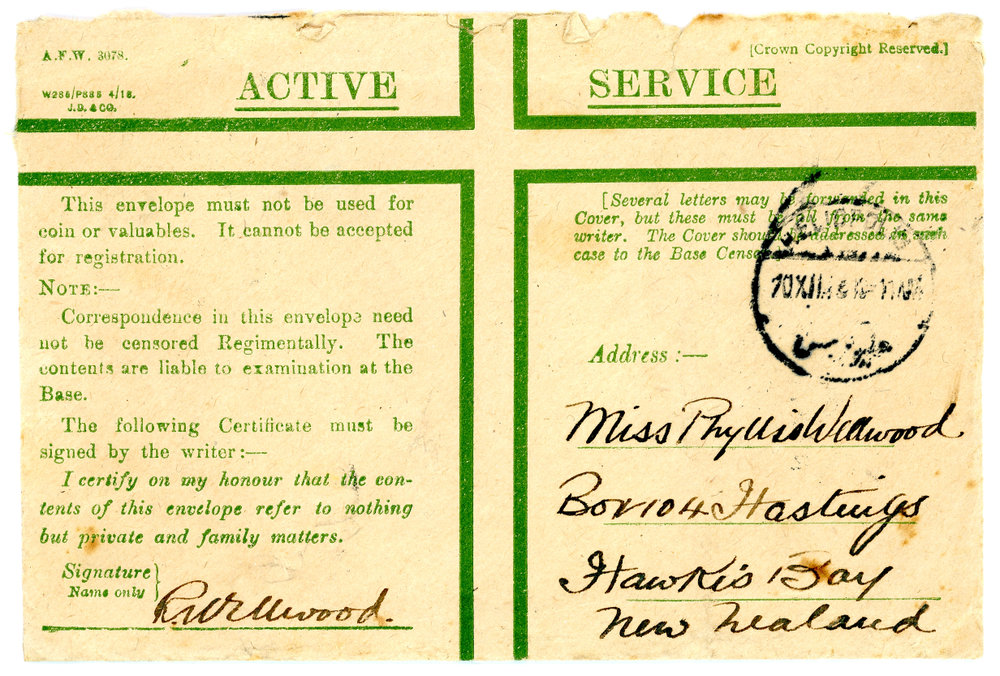 A.F.W. 3078.
W286/P888 4/18.
J.D. & CO.
ACTIVE SERVICE
[Crown Copyright Reserved.]
This envelope must not be used for
coin or valuables. It cannot be accepted
for registration.
NOTE:—
Correspondence in this envelope need
not be censored Regimentally. The
contents are liable to examination at the
Base.
The following Certificate must be
signed by the writer:—
I certify on my honour that the con-
tents of this envelope refer to nothing
but private and family matters.
Signature
Name only
R. Wellwood.
[Several letters may be forwarded in this
Cover, but these must be all from the same
writer. The Cover should be addressed in such
case to the Base Censor.
Address :—
Miss Phyllis Wellwood
Box 104 Hastings
Hawke's Bay
New Zealand